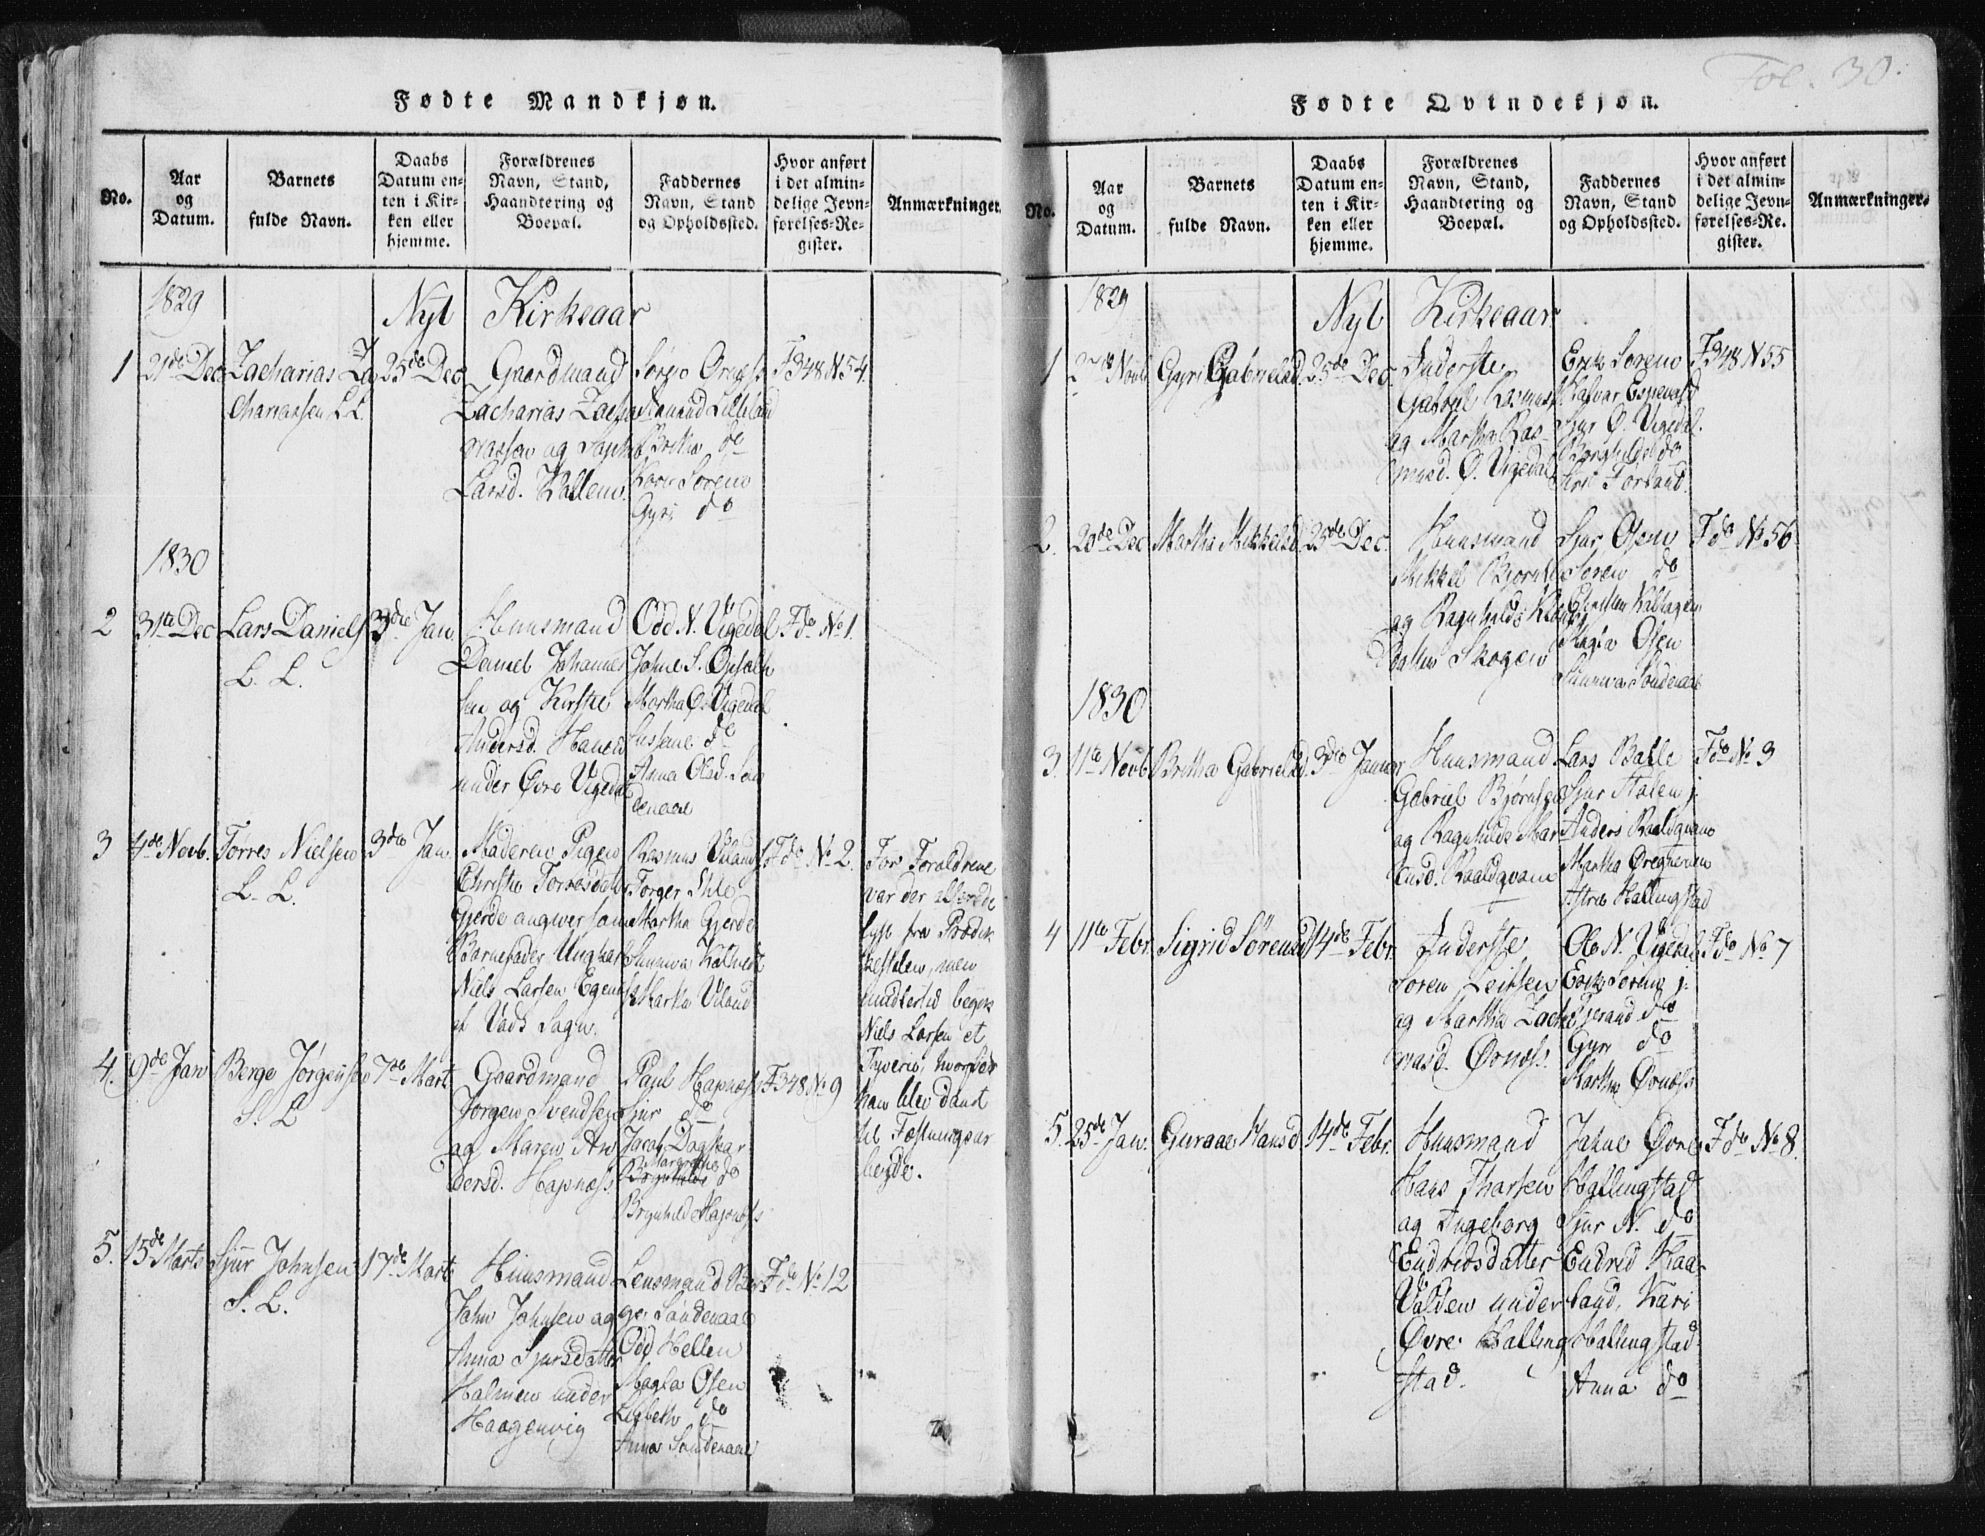 Fol. 30.
Fødte Mandkjøn.
No.
Aar
og
Datum.
Barnets
fulde Navn.
Daabs
Datum en-
ten i Kir-
ken eller
hjemme.
Forældrenes
Navn, Stand,
Haandtering og
Boepæl.
Faddernes
Navn, Stand
og Opholdssted.
Hvor anført
i det almin-
delige Jevn-
førelses-Re-
gister.
Anmærkninger.
1829
Nyt Kirkeaar
1
21de Dec
Zacharias Za
chariassen L L.
25de Dec
Gaardmand
Zacharias Zacha
riassen og
Larsd. Hallem.
Britha do
Kari Sørem
Gyri do
F 348 N 54.
1830
2
31te Dec
Lars Daniels
L. L.
3die Jan
Huusmand
Daniel Johannes
sen og Kirstie
Andersd.
under Øvre Vigedal
Odd N. Vigedal
Johne S. Opsalh
Martha Ø. Vigedal
do
Anna Olsd. Søn
denaae
F do No 1.
3
4de Novb.
Torres Nielsen
L. L.
3die Jan
Moderen Pigen
Christie Torresdater
Gjerde angiver som
Barnefader Ungkarl
Niels Larsen
af Vads Sogn.
Rasmus
Torger
Martha Gjerde
Sunniva
Martha
F do No 2.
For Forældrene
var der allerede
lyst fra Prædik
kestolen, men
imidlertid begik
Niels Larsen et
Tyverie, hvorfor
han blev dømt
til Fæstningsar
beyde.
4.
9de Jan
Berge Jørgensen
S. L
7de Mart
Gaardmand
Jørgen Svendsen
og Maren An
dersd. Hapnæss
Paul Hapnæss
Sjur do
Jacob Dagslar
Margrethe
do
Brynhild Hapnæss
F 348 No 9
5.
15de Marts
Sjur Johnsen
S. L.
17de Mart
Huusmand
John Johnsen og
Anna Sjursdatter
Holmen under
Haagenvig
Lensmand Bør
ge Søndenaae
Odd Hellen
Magla Osen
Lisbeth do
Anna Søndenaae
F do No 12
Fødte Qvindekjøn.
No.
Aar
og
Datum.
Barnets
fulde Navn.
Daabs
Datum en-
ten i Kir-
ken eller
hjemme.
Forældrenes
Navn, Stand,
Haandtering og
Boepæl.
Faddernes
Navn, Stand
og Opholdssted.
Hvor anført
i det almin-
delige Jevn-
førelses-Re-
gister.
Anmærkninger.
1829
Nyt Kirkeaar.
1
Novb
Gyri Gabrielsd.
25de Dec.
Inderste
Gabriel Rasmus
og Martha Ras
musd. Ø. Vigedal
Erik Sørem
Halvar Espevold
Sjur Ø. Vigedal.
Borghilde do
Siri Førland.
F 348 N 55
2.
20de Dec
Martha Mikkelsd.
25de Dec.
Huusmand
Mikkel Bjørn
og Ragnhilde
datter Skogen
Sjur Osen
Søren do
Magla Osen
Sunniva Søndenaae
F do No 56
1830
3.
11te Novb
Britha Gabrielsd.
3die Januar
Huusmand
Gabriel Bjørnsen
og Ragnhilde Mar
tinsd. Raaldqvam
Lars Balle
Sjur Stølen
Anders Raaldqvam
Martha
Hallingstad
F do No 3
4
11te Febr.
Sigrid Sørensd
14de Febr.
Inderste
Søren Leissen
og Martha Zacha
riasd. Ørnæss.
Ole N. Vigedal
Erik Søren
do
Gyri do
Martha Ørnæss
F do No 7
5.
25de Jan.
Guraae Hansd
14de Febr.
Huusmand
Hans Tharsen
og Ingeborg
Endridsdatter
Volden under
Øvre Halling
stad.
Johne Øvre
Hallingstad
Sjur N. do
Endrid Haa-
land, Kari
Hallingstad.
Anna do
F do No 8.